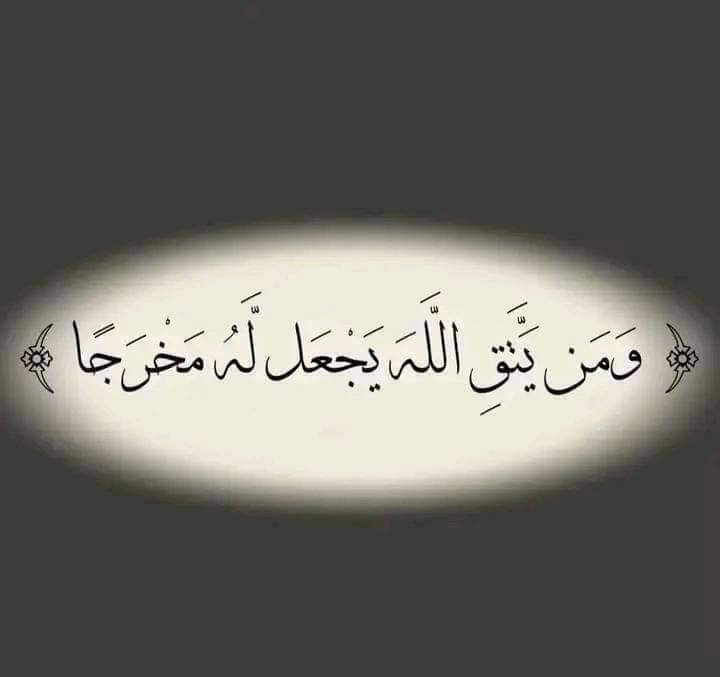 ﴿ وَمَن يَتَّقِ اللَّهَ يَجْعَل لَّهُ مَخْرَجًا ﴾